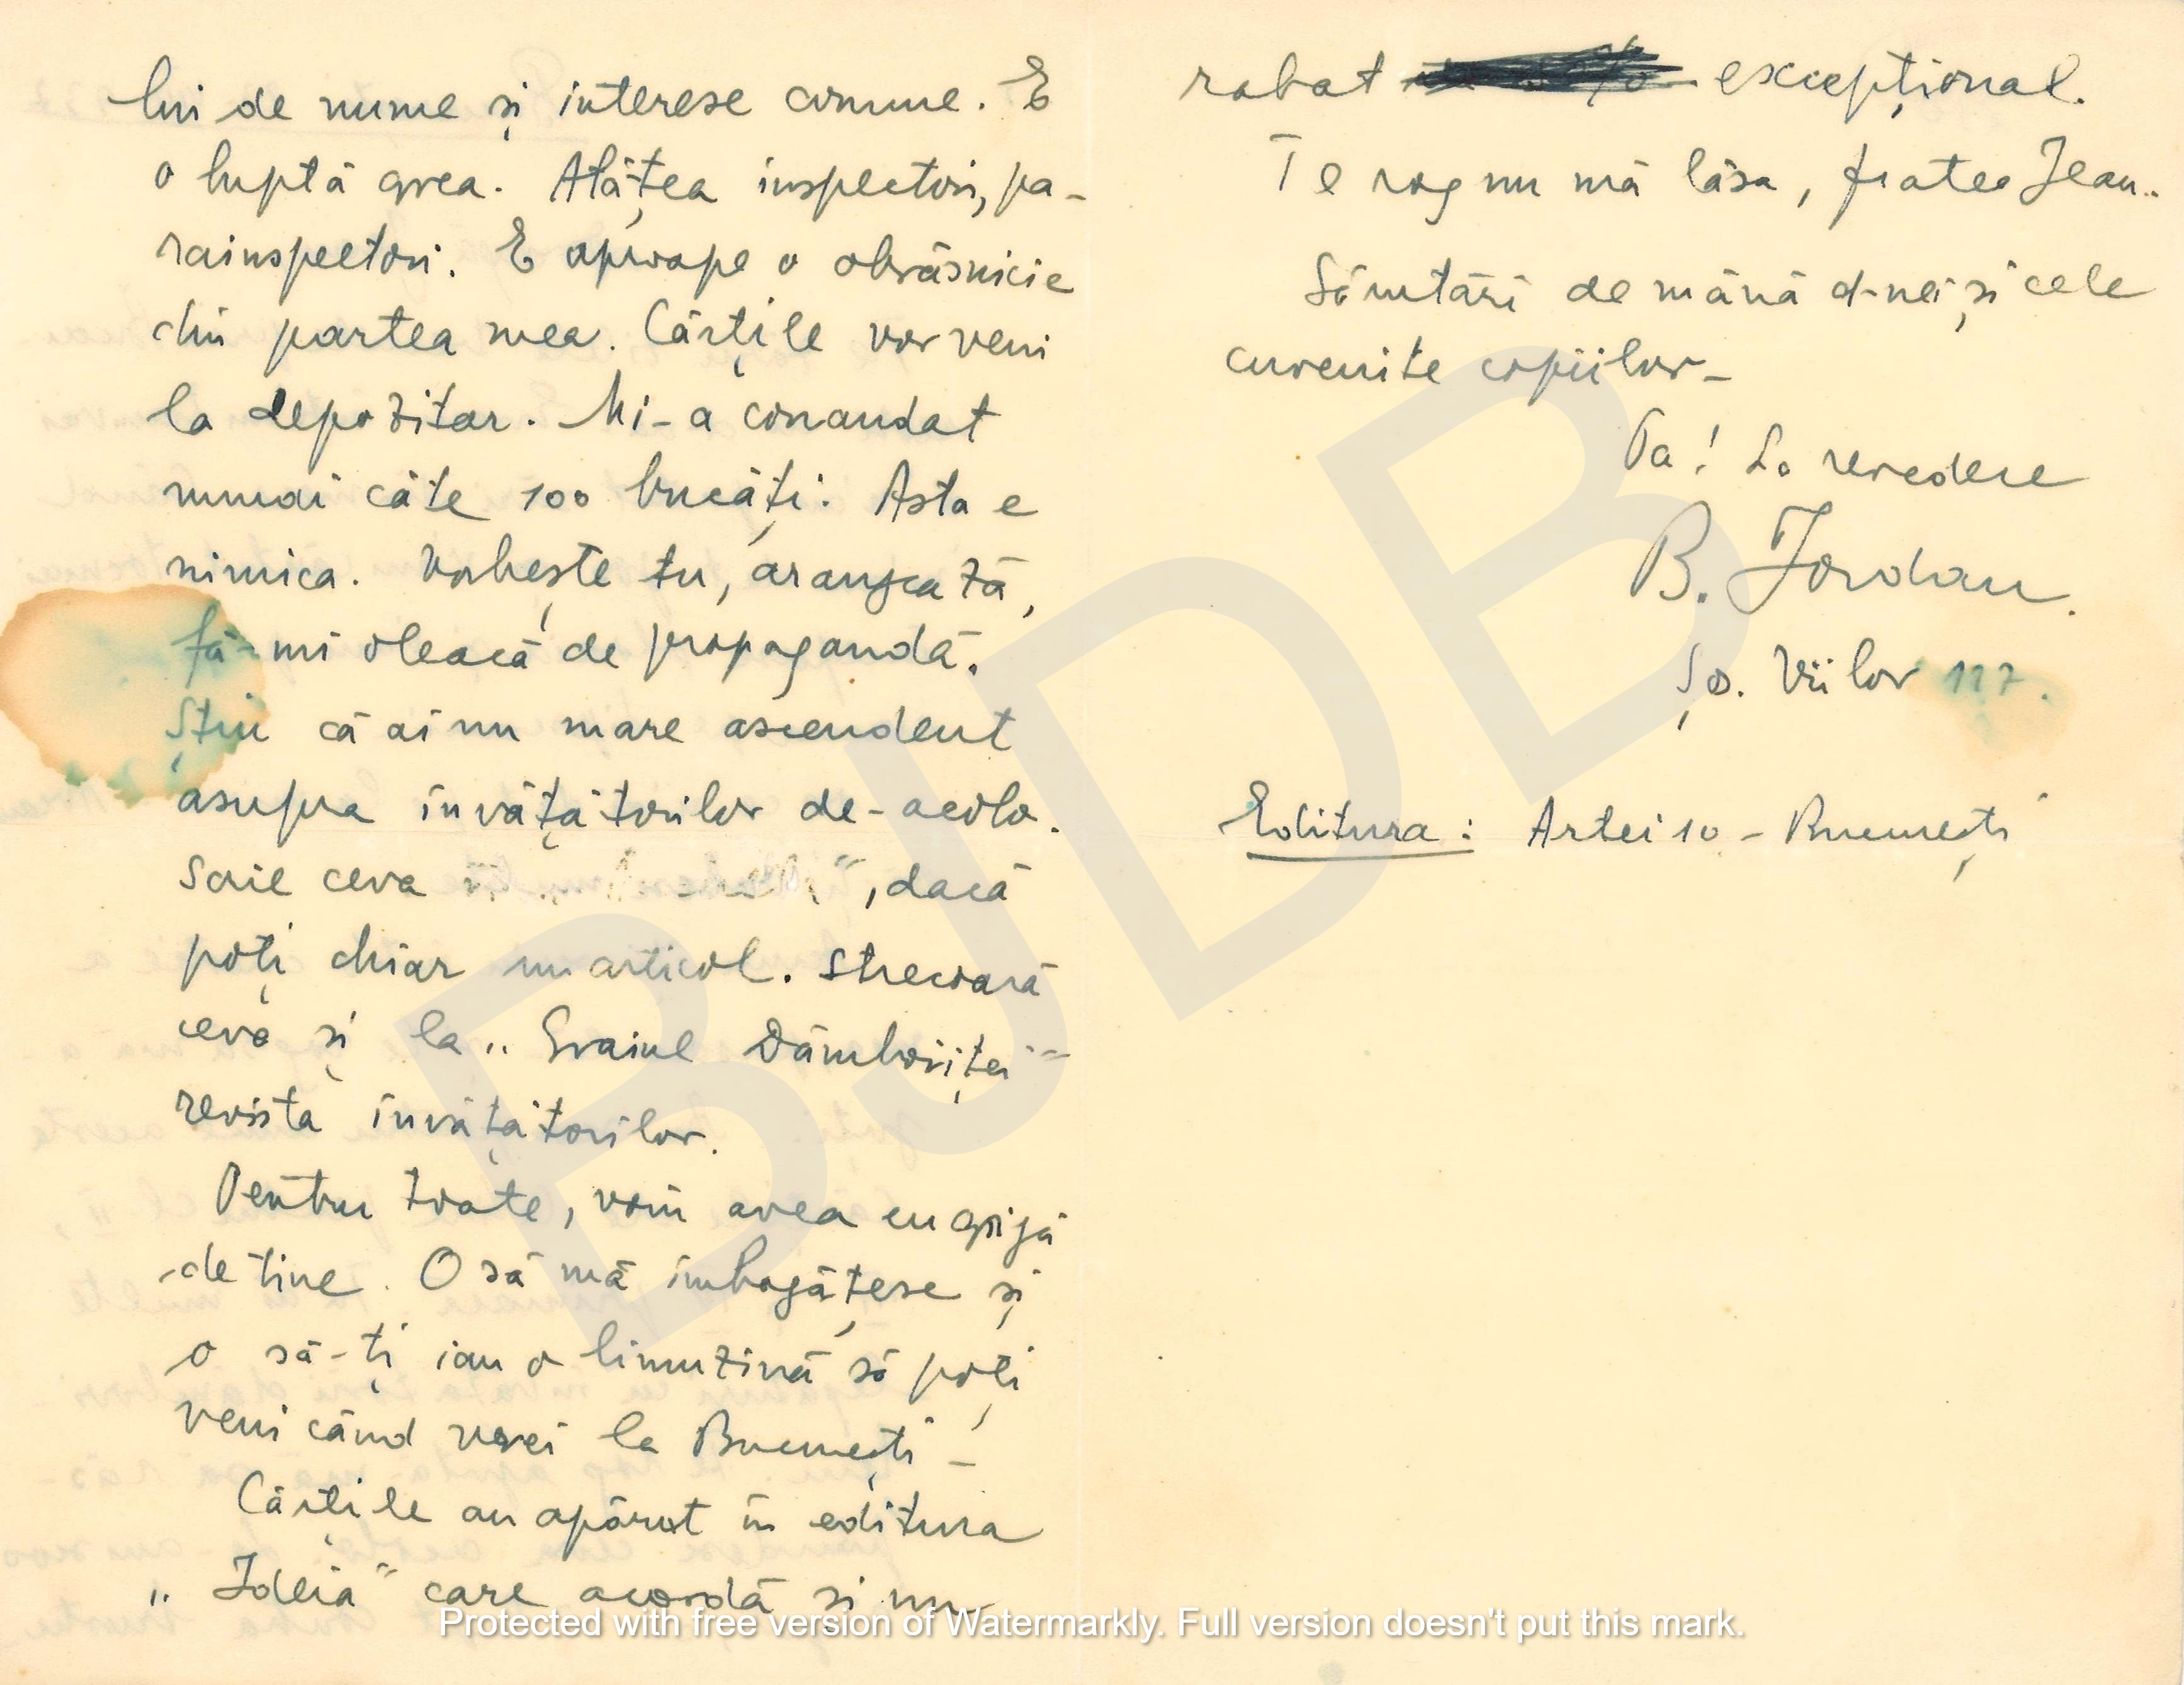 lui de nume și interese comune. E
o luptă grea. Atâțea inspectori, pa-
rainspectori. E aproape o obrăsnicie
din partea mea. Cărțile vor veni
la depozitar. Mi-a comandat
numai câte 100 bucăți. Asta e
nimica. Vorbește tu, aranjează,
fă-mi oleacă de propagandă.
Știu că ai un mare ascendent
asupra învățătorilor de-acolo.
Scrie ceva ", dacă
poți chiar un articol. Strecoară
ceva și la „Graiul Dâmboviței"
revista învățătorilor.
Pentru toate, voiu avea eu grijă
de tine. O să mă îmbogățesc și
o să-ți iau o limuzină să poți
veni când vrei la București –
Cărțile au apărut în editura
„Ideia" care acordă și un
rabat excepțional.
Te rog nu mă lăsa, frate Jean..
Sărutări de mână d-nei și cele
cuvenite copiilor –
Pa! La revedere
B. Jordan.
Șo. Viilor 117.
Editura: Artei 10 – București
BJDB
Protected with free version of Watermarkly. Full version doesn't put this mark.